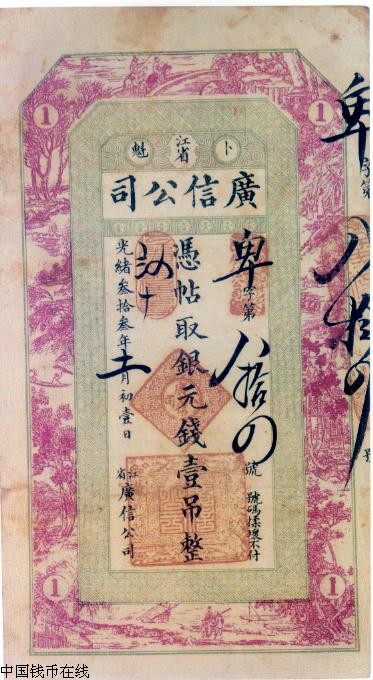 卜
江省
魁
廣信公司
卑字第八拾四號
號碼樣壞不付
憑帖取銀元錢壹吊整
光緒叁拾叁年十一月初壹日
江省廣信公司
1
1
1
1
卑字第
八拾四
號
中国钱币在线